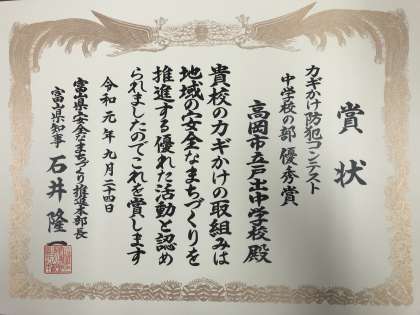 賞状
カギかけ防犯コンテスト
中学校の部 優秀賞
高岡市立戸出中学校 殿
貴校のカギかけの取組みは
地域の安全なまちづくりを
推進する優れた活動と認め
られましたのでこれを賞します
令和元年九月二十四日
富山県安全なまちづくり推進本部長
富山県知事 石井隆一